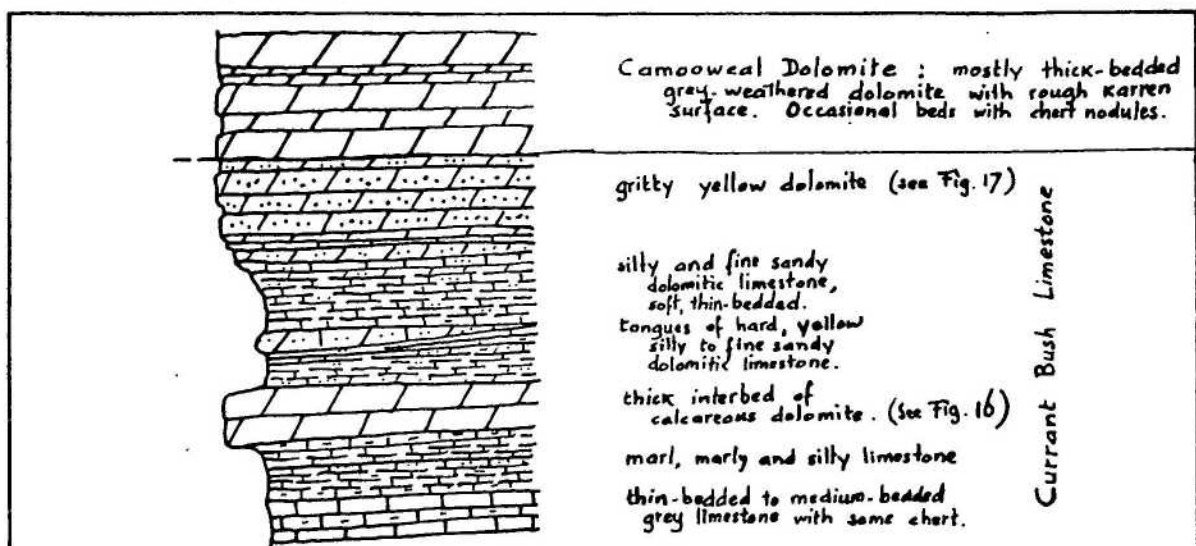 Camooweal Dolomite : mostly thick-bedded
grey-weathered dolomite with rough karren
surface. Occasional beds with chert nodules.
gritty yellow dolomite (see Fig. 17)
silty and fine sandy
dolomitic limestone,
soft, thin-bedded.
tongues of hard, yellow
silty to fine sandy
dolomitic limestone.
thick interbed of
calcareous dolomite. (See Fig. 16)
marl, marly and silty limestone
thin-bedded to medium-bedded
grey limestone with some chert.
Currant Bush Limestone